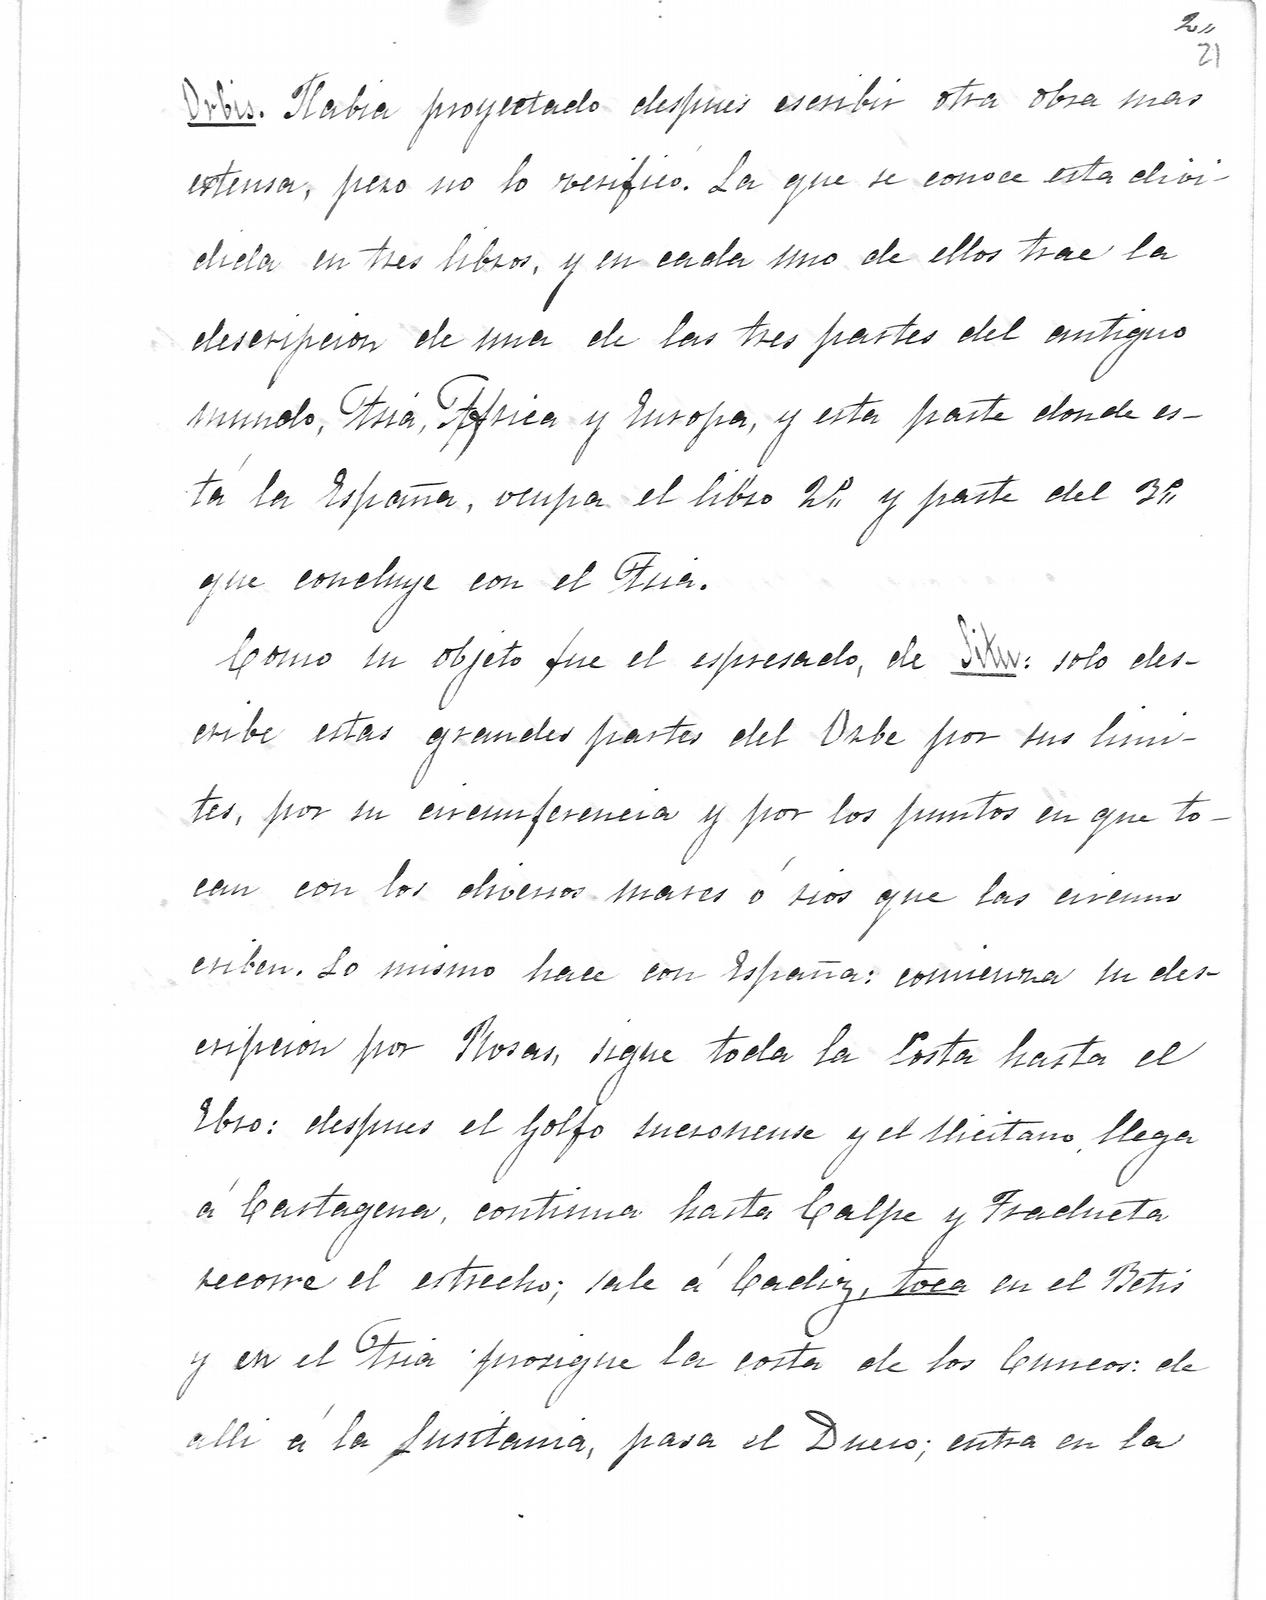 2,,
21
Orbis. Habia proyectado despues escribir otra obra mas
estensa, pero no lo verificó. La que se conoce esta divi-
dida en tres libros, y en cada uno de ellos trae la
descripcion de una de las tres partes del antiguo
mundo, Asia, Africa y Europa, y esta parte donde es-
tá la España, ocupa el libro 2º,, y parte del 3º,,
que concluye con el Asia.
Como su objeto fue el espresado, de Situ: solo des-
cribe estas grandes partes del Orbe por sus limi-
tes, por su circunferencia y por los puntos en que to-
can con los diversos mares ó rios que las circuns
criben. Lo mismo hace con España: comienza su des-
cripcion por Rosas, sigue toda la Costa hasta el
Ebro: despues el Golfo sucronense y el Ilicitano, llega
á Cartagena, continua hasta Calpe y Traducta
recorre el estrecho; sale á Cadiz, toca en el Betis
y en el Asia prosigue la costa de los Cuneos: de
alli á la Lusitania, pasa el Duero; entra en la